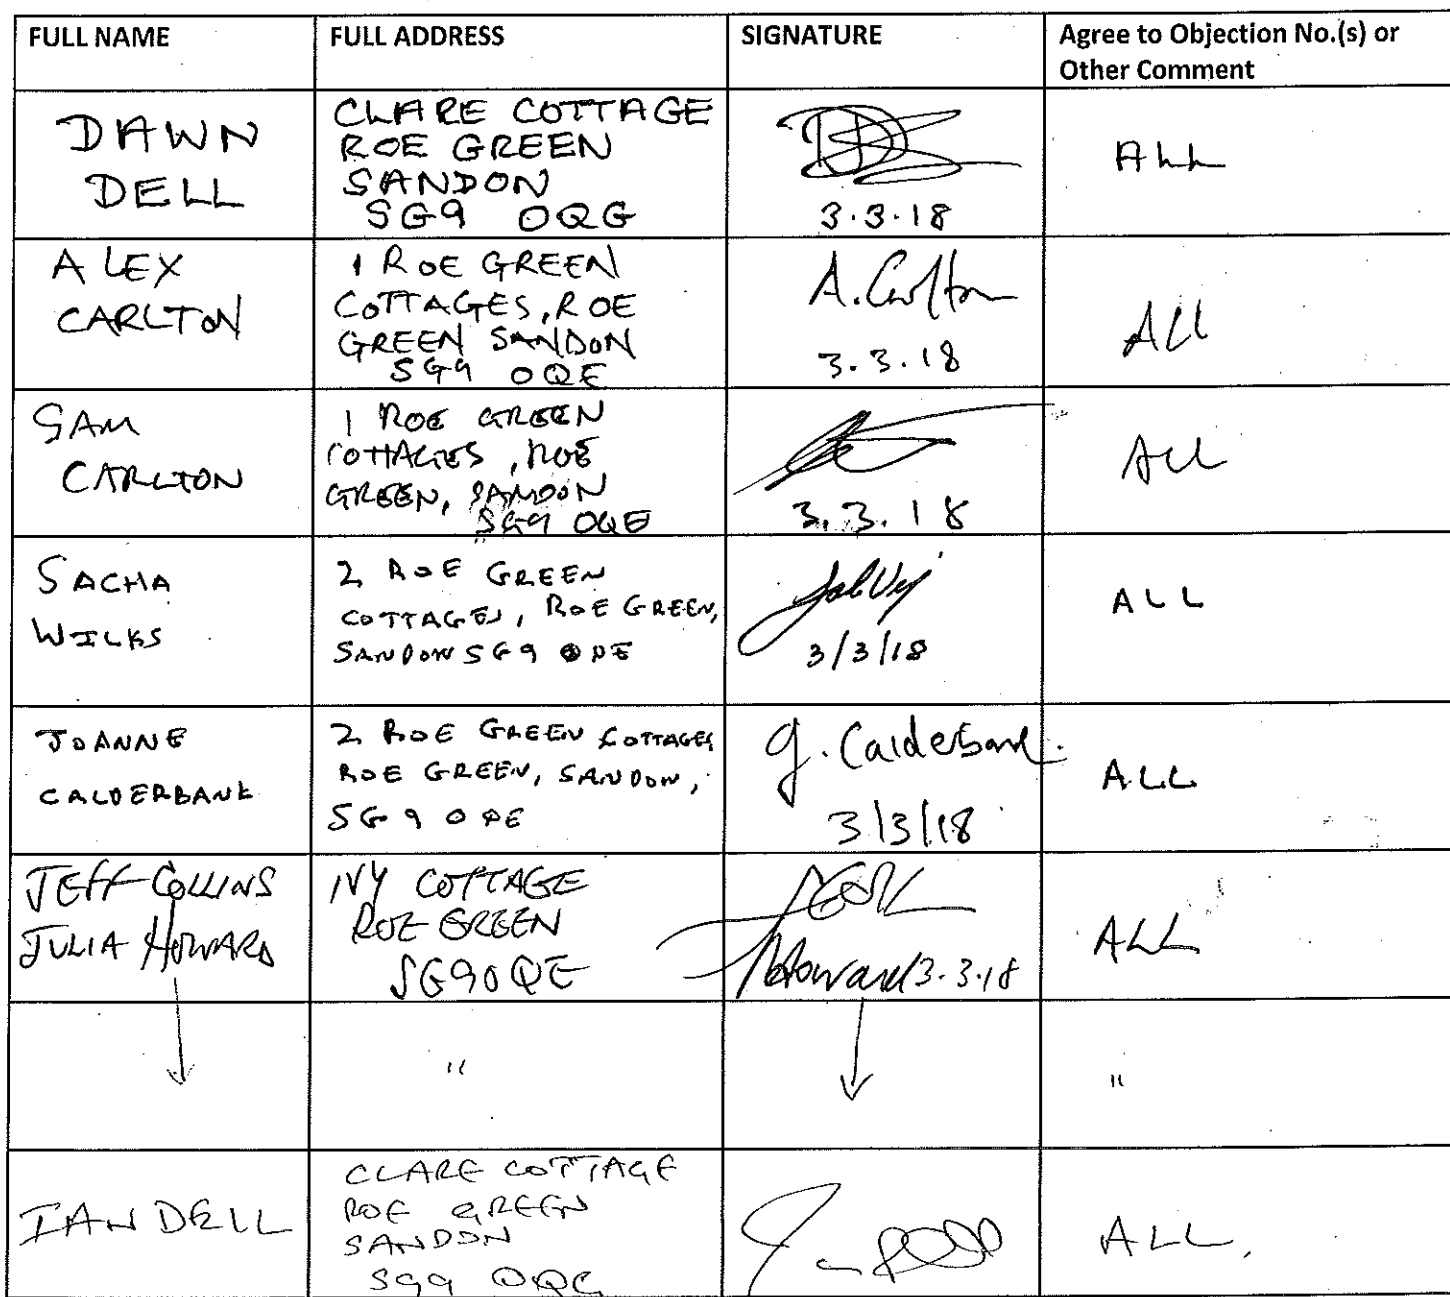 FULL NAME
FULL ADDRESS
SIGNATURE
Agree to Objection No.(s) or
Other Comment
DAWN
DELL
CLARE COTTAGE
ROE GREEN
SANDON
SG9 0QG
3.3.18
ALL
ALEX
CARLTON
1 ROE GREEN
COTTAGES, ROE
GREEN SANDON
SG9 0QE
A. Carlton
3.3.18
ALL
SAM
CARLTON
1 ROE GREEN
COTTAGES, ROE
GREEN, SANDON
SG9 0QE
3.3.18
ALL
SACHA
WILKS
2 ROE GREEN
COTTAGES, ROE GREEN,
SANDON SG9 0QE
3/3/18
ALL
JOANNE
CALDERBANK
2 ROE GREEN COTTAGES
ROE GREEN, SANDON,
SG9 0QE
J. Calderbank.
3/3/18
ALL
JEFF COLLINS
JULIA HOWARD
IVY COTTAGE
ROE GREEN
SG9 0QE
Howard 3.3.18
ALL
"
"
IAN DELL
CLARE COTTAGE
ROE GREEN
SANDON
SG9 0QG
ALL.